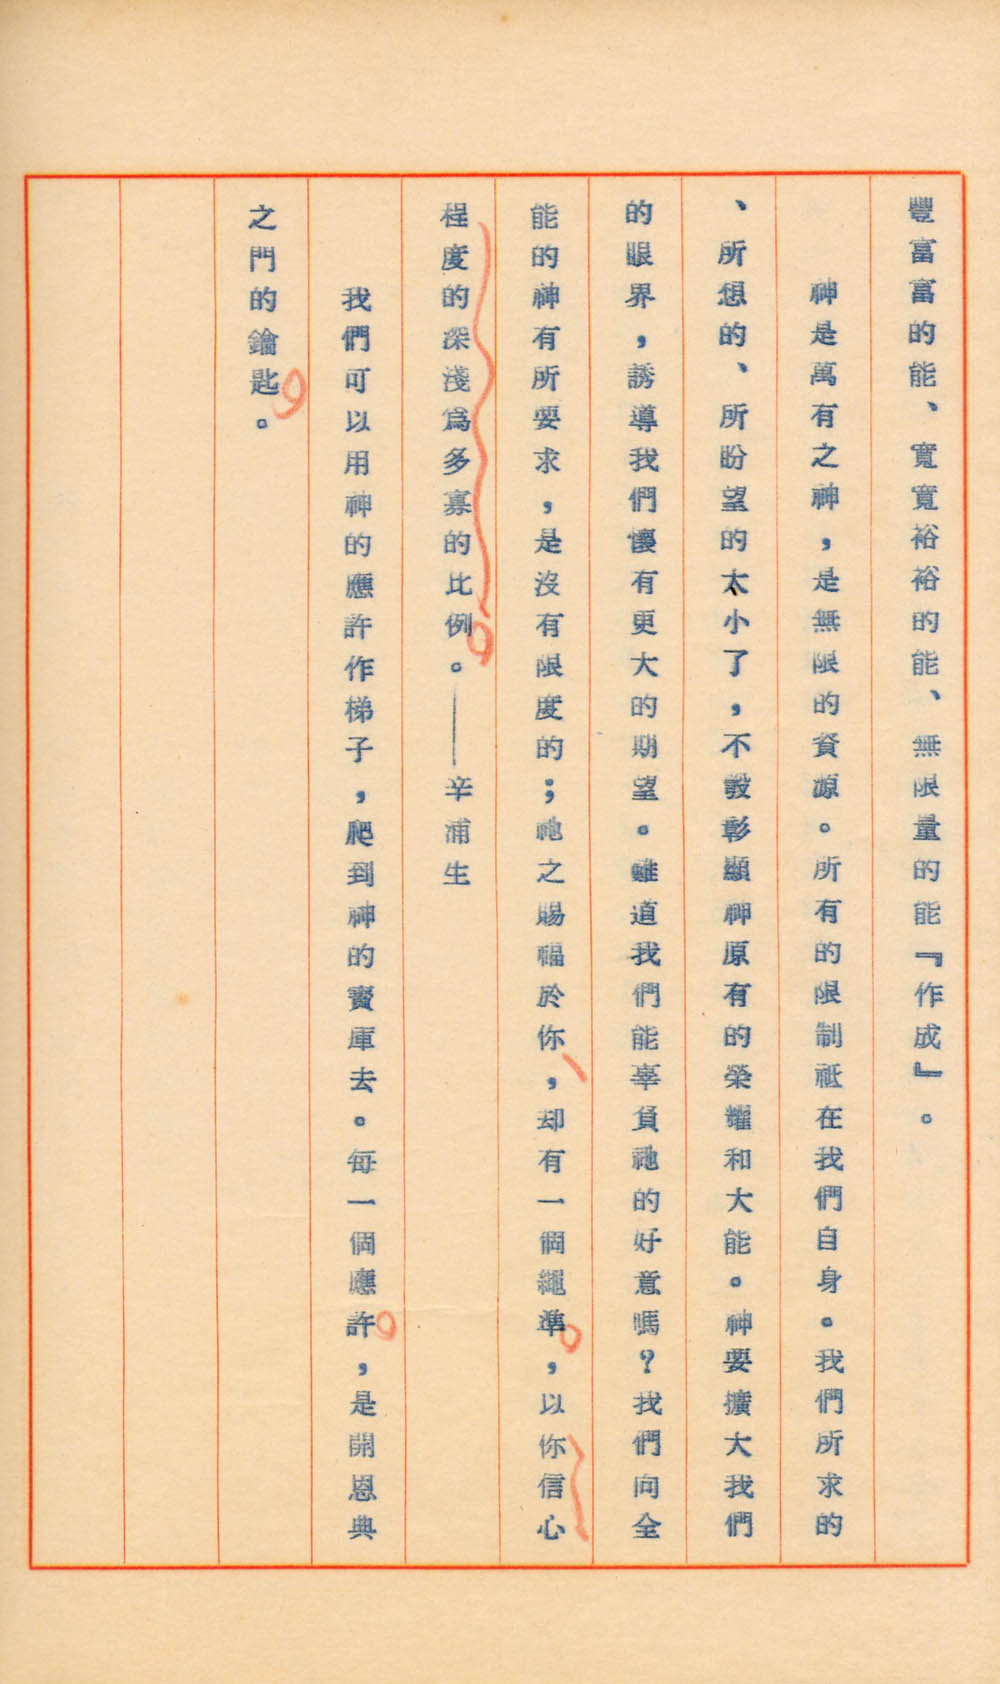 豐富富的能、寬寬裕裕的能、無限量的能『作成』。
神是萬有之神，是無限的資源。所有的限制祗在我們自身。我們所求的
、所想的、所盼望的太小了，不彀彰顯神原有的榮耀和大能。神要擴大我們
的眼界，誘導我們懷有更大的期望。難道我們能辜負祂的好意嗎？我們向全
能的神有所要求，是沒有限度的；祂之賜福於你，却有一個繩準，以你信心
程度的深淺爲多寡的比例。——辛浦生
我們可以用神的應許作梯子，爬到神的寳庫去。每一個應許，是開恩典
之門的鑰匙。